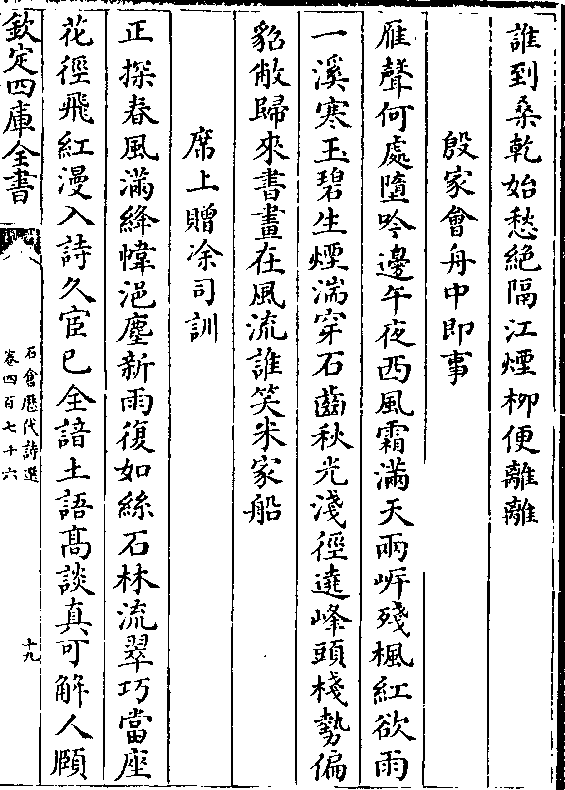 誰到桑乾始愁絶隔江煙柳便離離
殷家會舟中即事
雁聲何處墮吟邊午夜西風霜滿天兩㟁殘楓紅欲雨
一溪寒玉碧生煙湍穿石齒秋光淺徑遶峰頭棧勢偏
貂敝歸來書畫在風流誰笑米家船
席上贈凃司訓
正探春風滿絳幃浥塵新雨復如絲石林流翠巧當座
花徑飛紅漫入詩久宦已全諳土語髙談真可解人頤
欽定四庫全書
石倉歷代詩選
卷四百七十六
十九